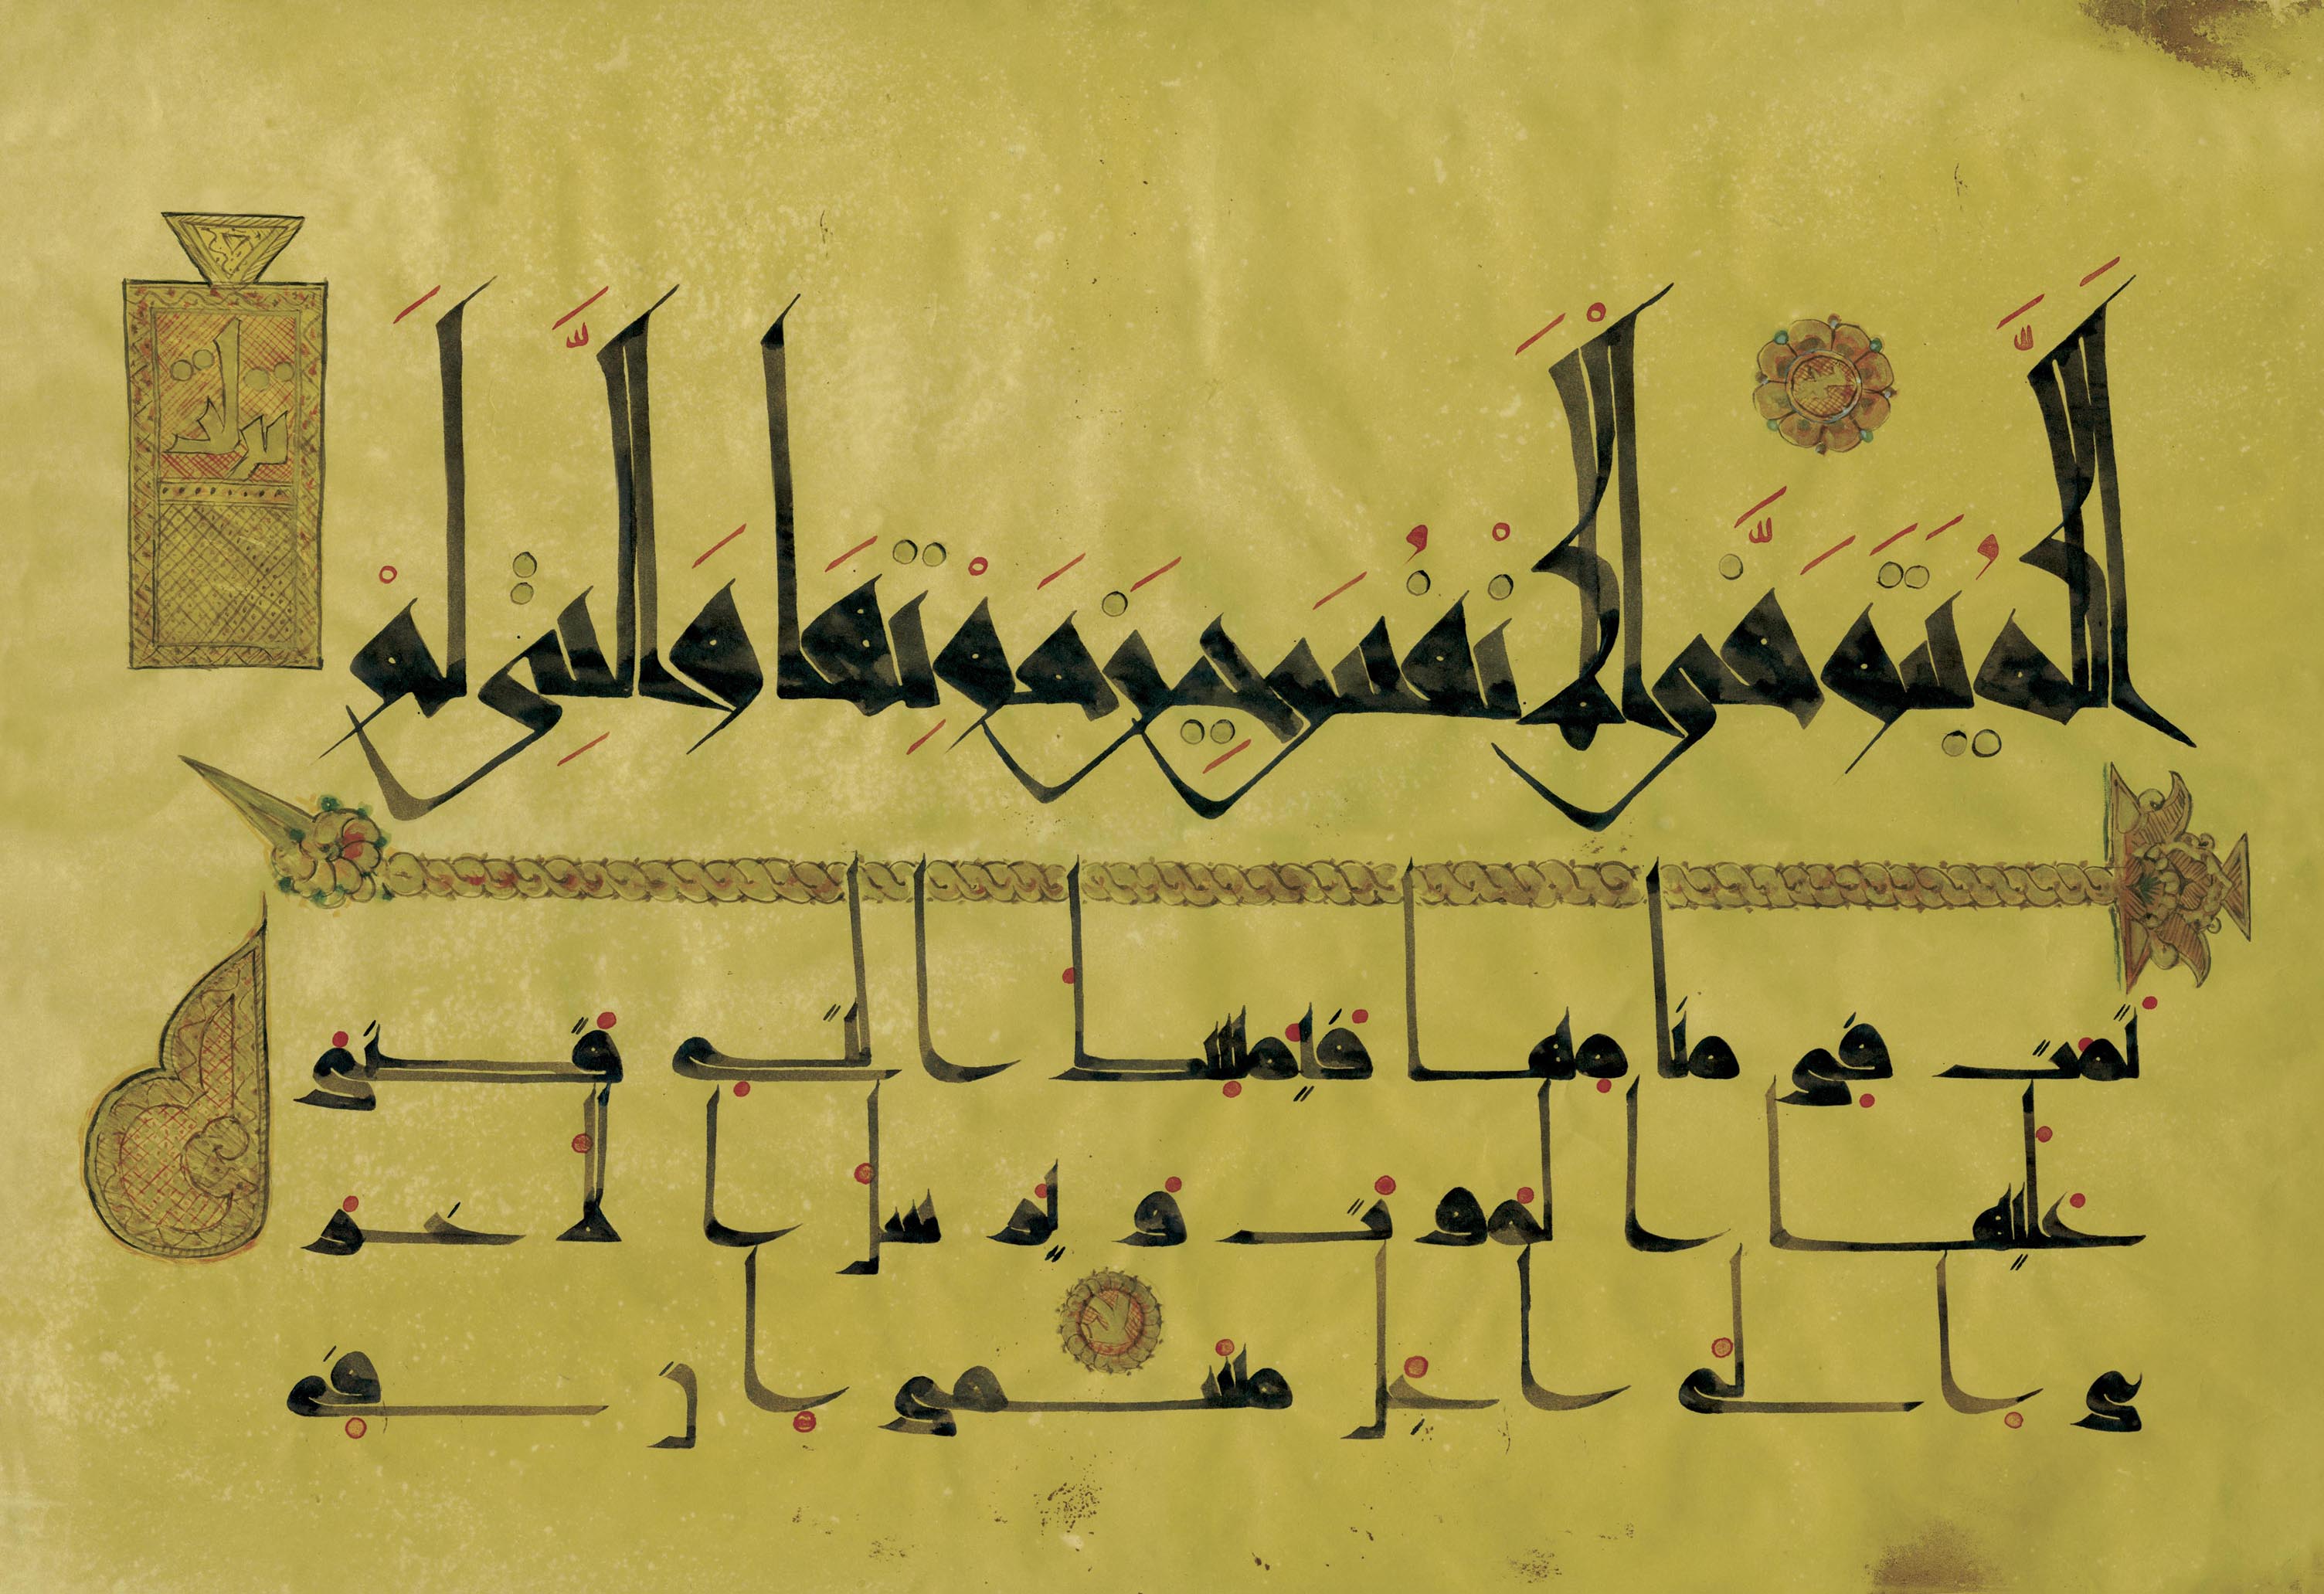 اللَّهُ يَتَوَفَّى الْأَنْفُسَ حِينَ مَوْتِهَا وَالَّتِي لَمْ
تمت في منامها فيمسك التي قضى
عليها الموت و يرسل الاخر
ى الى اجل مسمى ان في